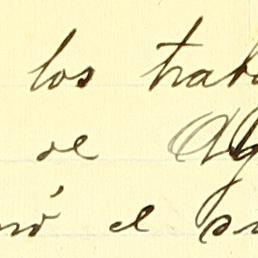 los trab
de Ag
nó el su